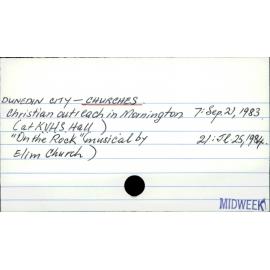 DUNEDIN CITY — CHURCHES.
Christian outreach in Mornington 7: Sep. 21, 1983
(at KVHS Hall)
"On the Rock" musical by 21: Jl 25, 1984.
Elim Church)
MIDWEEK